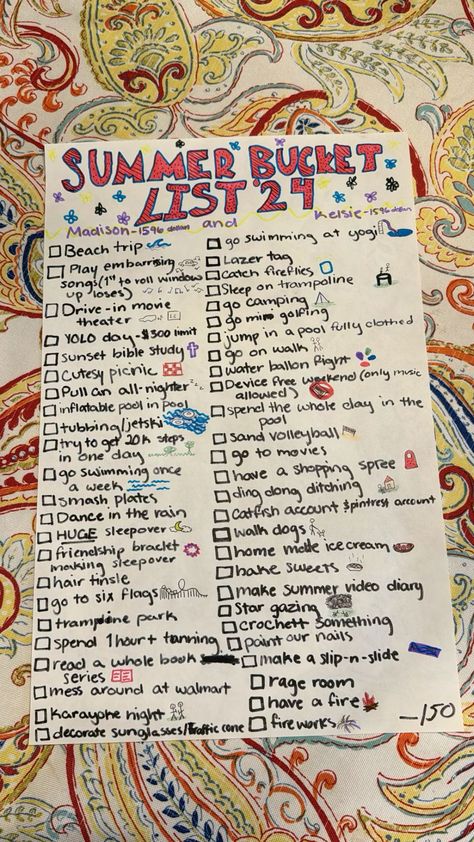 SUMMER BUCKET
LIST '24
Madison-1596 dollars and Kelsie-1596 dollars
Beach trip
Play embarrising
songs (1st to roll window
up loses)
Drive-in movie
theater
YOLO day-$300 limit
Sunset bible study
Cutesy picnic
Pull an all-nighter
inflatable pool in pool
tubbing/jetski
try to get 20k steps
in one day
go swimming once
a week
Smash plates
Dance in the rain
HUGE sleepover
friendship braclet
making sleepover
hair tinsle
go to six flags
trampoline park
spend 1 hour+ tanning
read a whole book
series
mess around at walmart
Karayoke night
decorate sunglasses/traffic cone
go swimming at yogi
Lazer tag
Catch fireflies
Sleep on trampoline
go camping
go mini golfing
jump in a pool fully clothed
go on walk
water ballon fight
Device free weekend (only music
allowed)
spend the whole day in the
pool
sand volleyball
go to movies
have a shopping spree
ding dong ditching
Catfish account & pintrest account
walk dogs
home made ice cream
bake sweets
make summer video diary
Star gazing
crochett something
paint our nails
make a slip-n-slide
rage room
have a fire
fireworks
-150